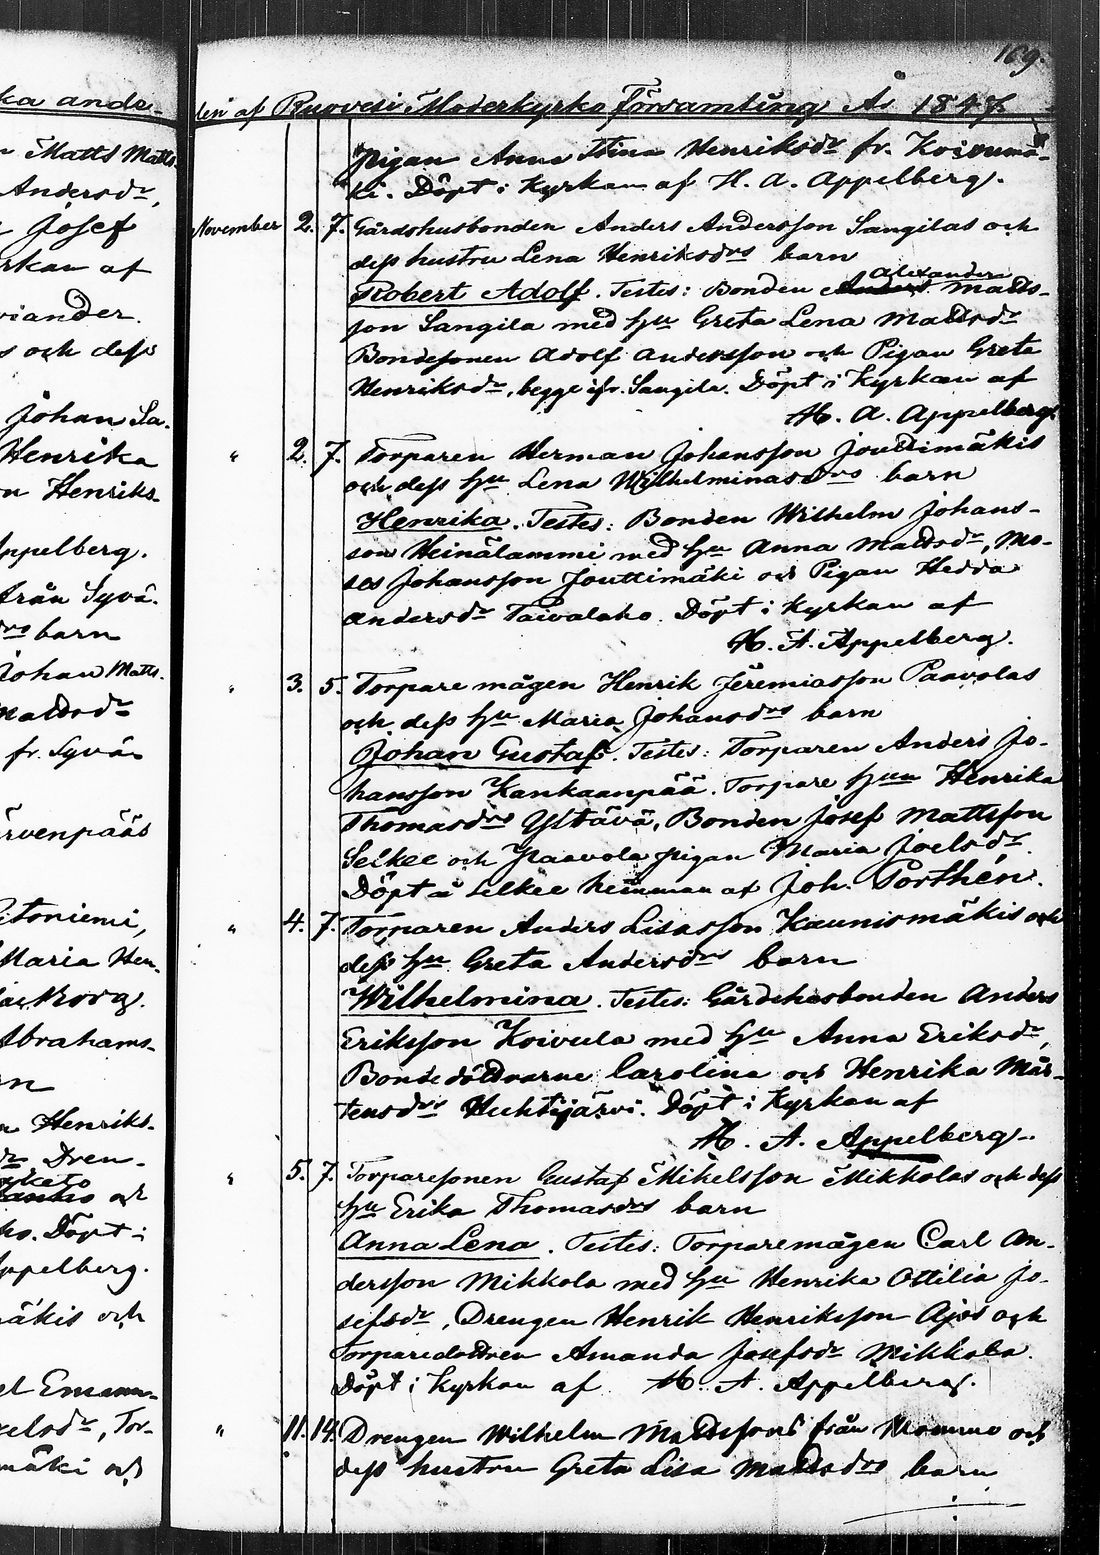 169.
ka ande-
n Matts Matts
Andersdr,
Josef
rkan af
viander.
s och dess
Johan Sa-
Henrika
n Henriks-
Appelberg.
från Syvä-
drs barn
Johan Matts-
Mattsdr
fr. Syvä-
ärvenpääs
Maria Hen-
Abrahams-
rn
n Henriks-
dr Dren-
ho. Döpt i
Appelberg.
mäkis och
el Emanu-
elsdr, Tor-
mäki och
den af Ruovesi Moderkyrko Församling År 1847.
Pigan Anna Stina Henriksdr fr. Koivumä-
ki. Döpt i Kyrkan af H. A. Appelberg.
November 2. 7. Gårdshusbonden Anders Andersson Sangilas och
dess hustru Lena Henriksdrs barn
Alexander
Robert Adolf. Testes: Bonden Anders Matts-
son Sangila med hu Greta Lena Mattsdr
Bondesonen Adolf Andersson och Pigan Greta
Henriksdr, begge ifr. Sangila. Döpt i Kyrkan af
H. A. Appelberg.
" 2. 7. Torparen Herman Johansson Jouttimäkis
och dess hu Lena Wilhelminasdrs barn
Henrika. Testes: Bonden Wilhelm Johans-
son Heinälammi med hu Anna Mattsdr, Mo-
ses Johansson Jouttimäki och Pigan Hedda
Andersdr Taivalaho. Döpt i Kyrkan af
H. A. Appelberg.
" 3. 5. Torpare mågen Henrik Jeremiasson Paavolas
och dess hu Maria Johansdrs barn
Johan Gustaf. Testes: Torparen Anders Jo-
hansson Kankaanpää. Torpare hun Henrika
Thomasdrs Ylävä, Bonden Josef Mattsson
Selkee och Paavola pigan Maria Joelsdr.
Döpt å Selkee hemman af Joh. Porthén.
" 4. 7. Torparen Anders Lisasson Kaunismäkis och
dess hu Greta Andersdrs barn
Wilhelmina. Testes: Gårdshusbonden Anders
Eriksson Koivula med hu Anna Eriksdr,
Bondedöttrarne Carolina och Henrika Mår-
tensdrs Huhtijärvi. Döpt i Kyrkan af
H. A. Appelberg.
" 5. 7. Torparesonen Gustaf Mikelsson Mikkolas och dess
hu Erika Thomasdrs barn
Anna Lena. Testes: Torparemågen Carl An-
dersson Mikkola med hu Henrika Ottilia Jo-
sefsdr, Drengen Henrik Henriksson Ajos och
Torparedottren Amanda Josefsdr Mikkola.
Döpt i Kyrkan af H. A. Appelberg.
" 11. 14. Drengen Wilhelm Mattssons från Mommo och
dess hustru Greta Lisa Mattsdrs barn